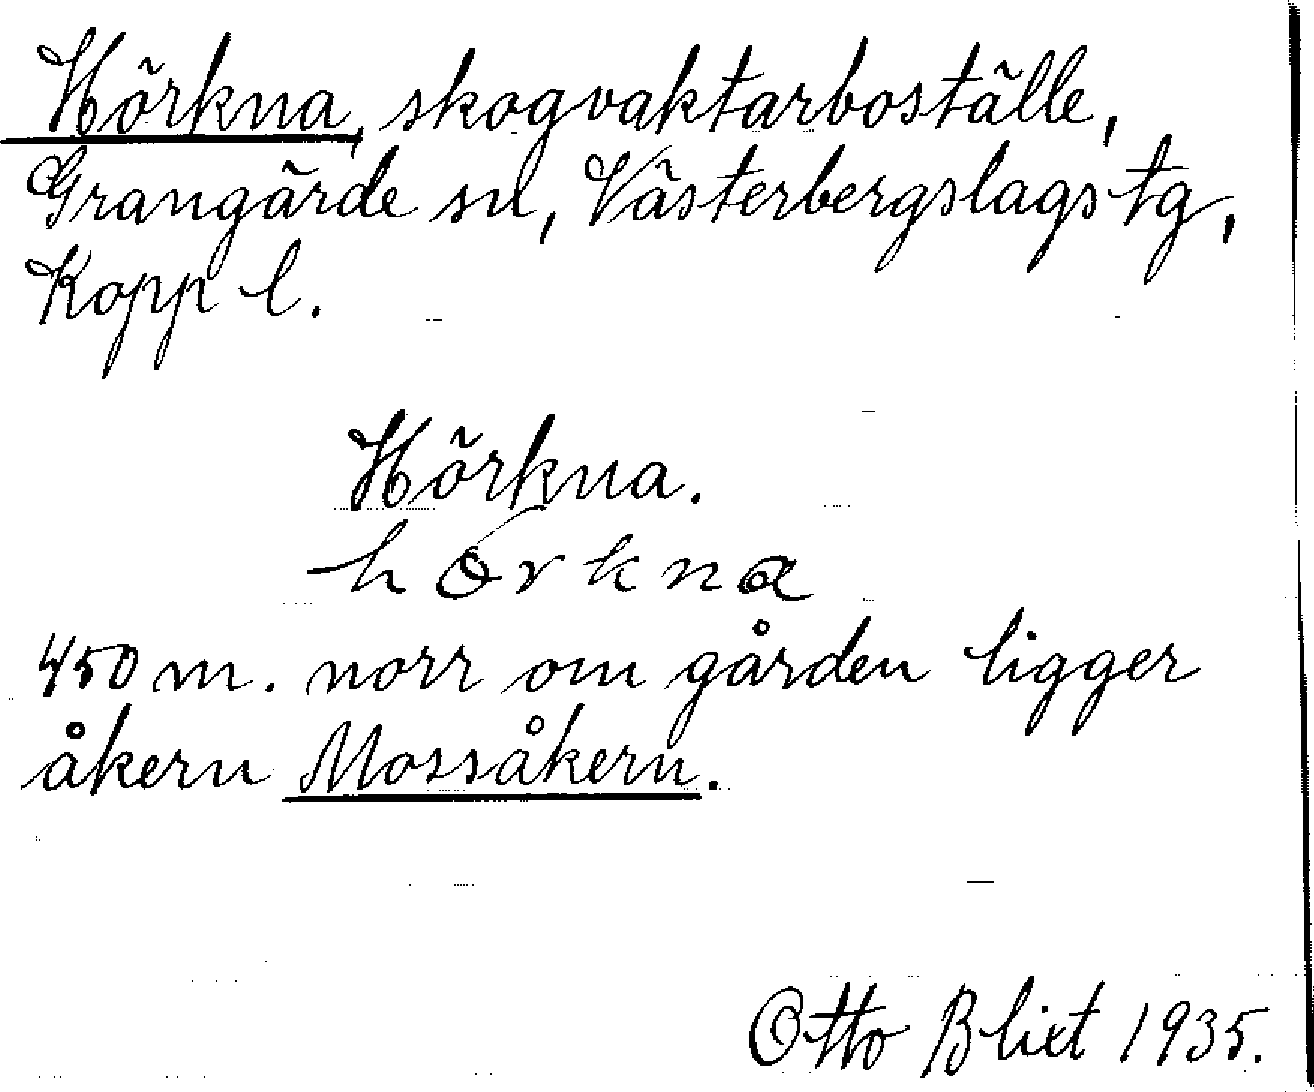 Hörkna, skogvaktarboställe,
Grangärde sn, Västerbergslags tg,
Kopp l.
Hörkna.
hörkna
450 m. norr om gården ligger
åkern Mossåkern.
Otto Blixt 1935.